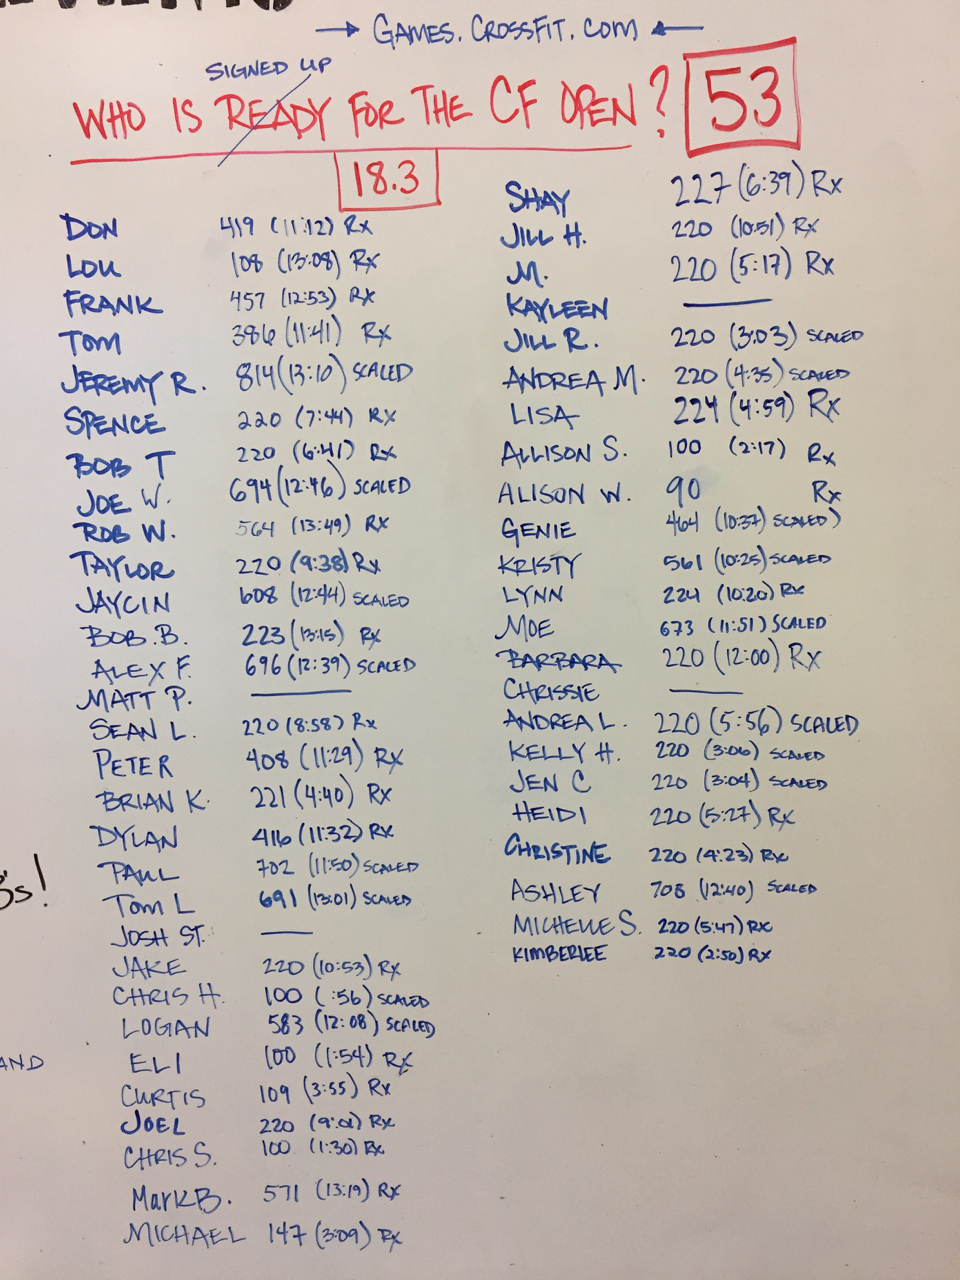 → GAMES.CROSSFIT.COM ←
SIGNED UP
WHO IS READY FOR THE CF OPEN? 53
18.3
DON 419 (11:12) Rx
LOU 108 (13:08) Rx
FRANK 457 (12:53) Rx
TOM 386 (11:41) Rx
JEREMY R. 814 (13:10) SCALED
SPENCE 220 (7:44) Rx
BOB T 220 (6:41) Rx
JOE W. 694 (12:46) SCALED
ROB W. 564 (13:49) Rx
TAYLOR 220 (9:38) Rx
JAYCIN 608 (12:44) SCALED
BOB.B. 223 (13:15) Rx
ALEX F. 696 (12:39) SCALED
MATT P. ———
SEAN L. 220 (8:58) Rx
PETER 408 (11:29) Rx
BRIAN K. 221 (4:40) Rx
DYLAN 416 (11:32) Rx
PAUL 702 (11:50) SCALED
TOM L 691 (13:01) SCALED
JOSH ST. ———
JAKE 220 (10:53) Rx
CHRIS H. 100 (:56) SCALED
LOGAN 583 (12:08) SCALED
ELI 100 (1:54) Rx
CURTIS 109 (3:55) Rx
JOEL 220 (9:01) Rx
CHRIS S. 100 (1:30) Rx
MARK B. 571 (13:19) Rx
MICHAEL 147 (3:09) Rx
SHAY 227 (6:39) Rx
JILL H. 220 (10:51) Rx
M. 220 (5:17) Rx
KAYLEEN ———
JILL R. 220 (3:03) SCALED
ANDREA M. 220 (4:35) SCALED
LISA 224 (4:59) Rx
ALLISON S. 100 (2:17) Rx
ALISON W. 90 Rx
GENIE 464 (10:37) SCALED)
KRISTY 561 (10:25) SCALED
LYNN 224 (10:20) Rx
MOE 673 (11:51) SCALED
BARBARA 220 (12:00) Rx
CHRISSIE ———
ANDREA L. 220 (5:56) SCALED
KELLY H. 220 (3:06) SCALED
JEN C 220 (3:04) SCALED
HEIDI 220 (5:27) Rx
CHRISTINE 220 (4:23) Rx
ASHLEY 708 (12:40) SCALED
MICHELLE S. 220 (5:47) Rx
KIMBERLEE 220 (2:50) Rx
AND